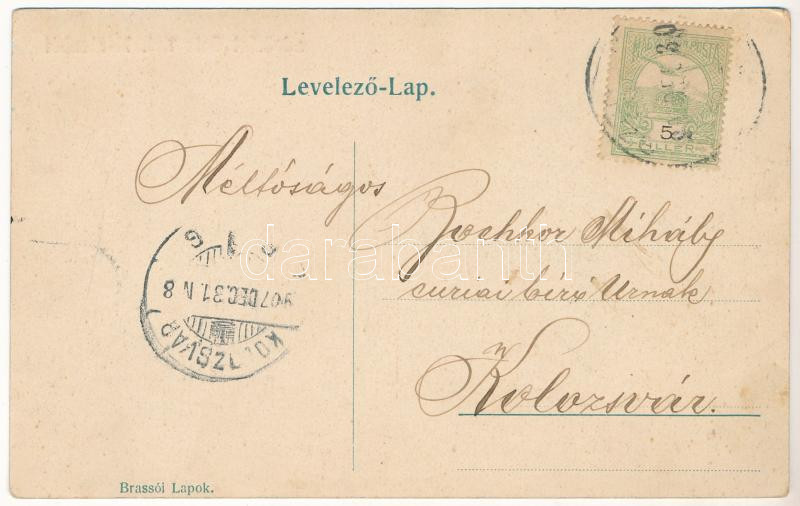 Levelező-Lap.
MAGYAR
5
FILLÉR
Méltóságos
Bochkor Mihály
curiai biró Urnak
Kolozsvár.
907 DEC. 31. N 8
KOLOZSVÁR
darabanth
Brassói Lapok.